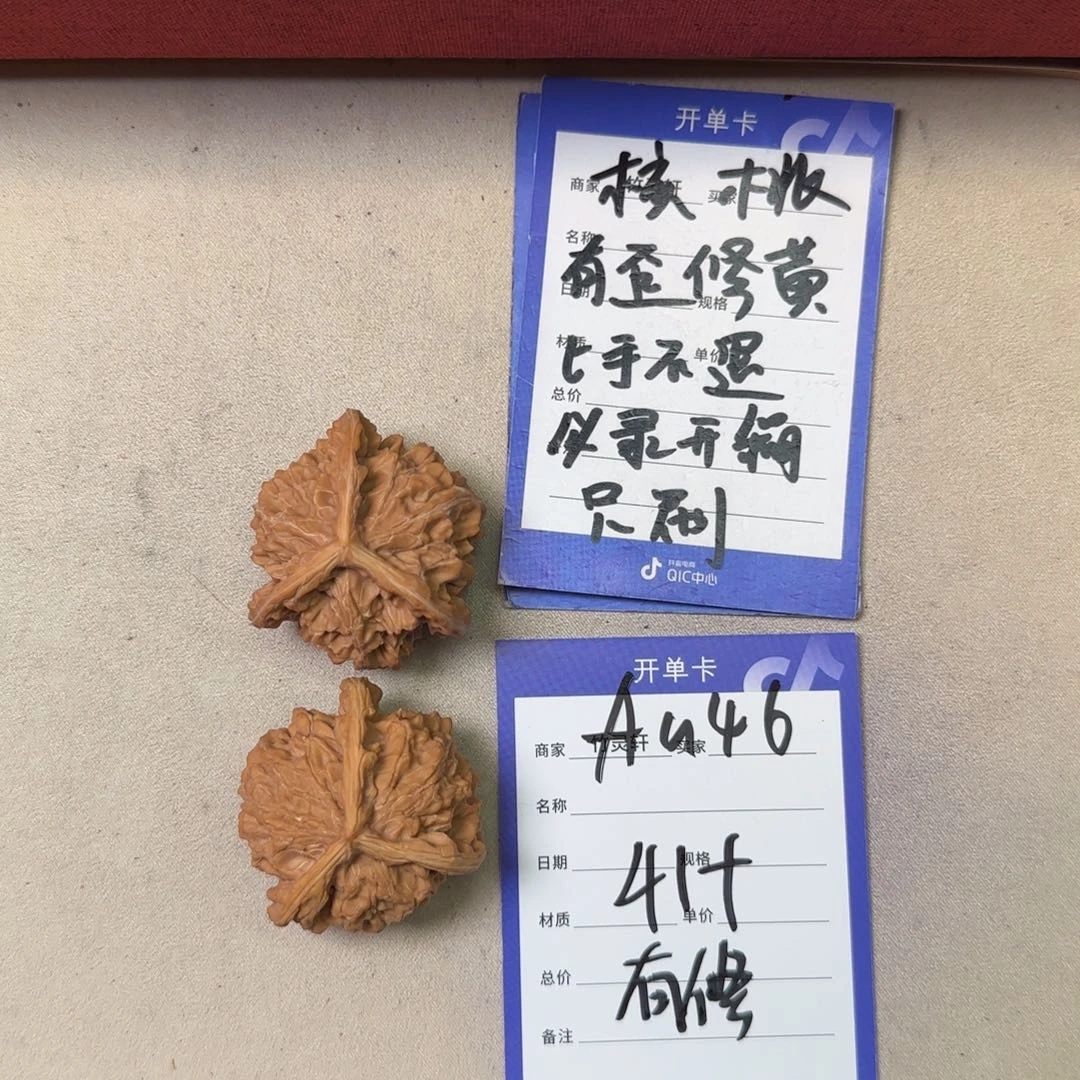 开单卡
商家 竹灵轩 买家
核桃
名称
有歪修黄
日期 规格
材质 单价
上手不退
总价
必录开箱
只刷
抖音电商
QIC中心
开单卡
Au46
商家 竹灵轩 买家
名称
日期 规格
41+
材质 单价
总价
有修
备注